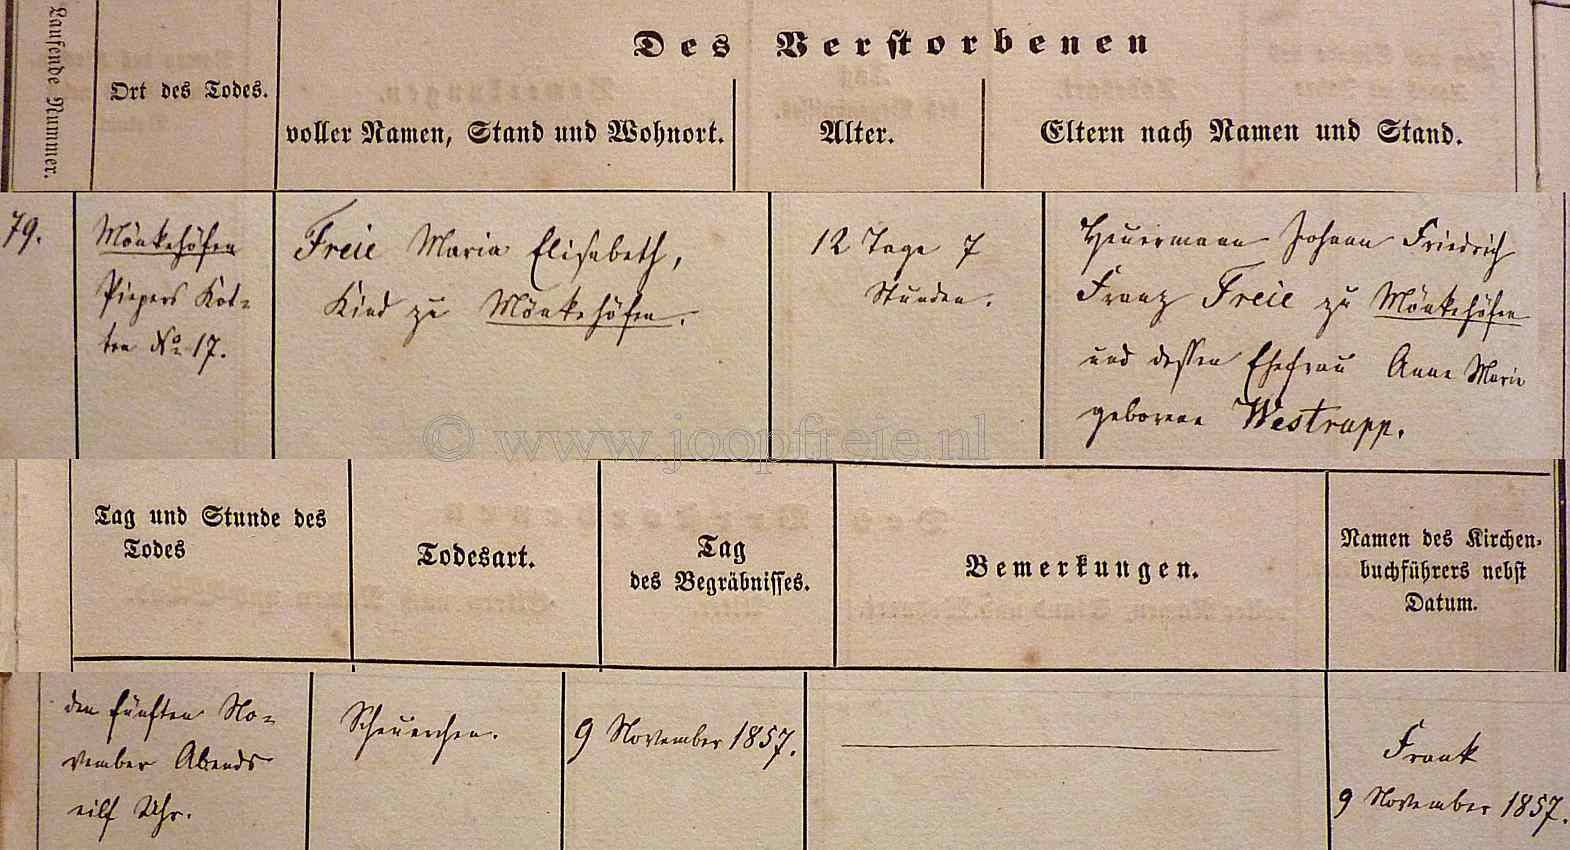 Laufende Nummer.
Des Verstorbenen
Ort des Todes.
voller Namen, Stand und Wohnort.
Alter.
Eltern nach Namen und Stand.
79.
Mönkehöfen
Piepers Kot=
ten No 17.
Freie Maria Elisabeth,
Kind zu Mönkehöfen.
12 Tage 7
Stunden.
Heuermann Johann Friedrich
Franz Freie zu Mönkehöfen
und dessen Ehefrau Anne Marie
geborene Westrupp.
© www.joopfreie.nl
Tag und Stunde des
Todes
Todesart.
Tag
des Begräbnisses.
Bemerkungen.
Namen des Kirchen=
buchführers nebst
Datum.
den fünften No=
vember Abends
eilf Uhr.
Scheuerchen.
9 November 1857.
Frank
9 November 1857.